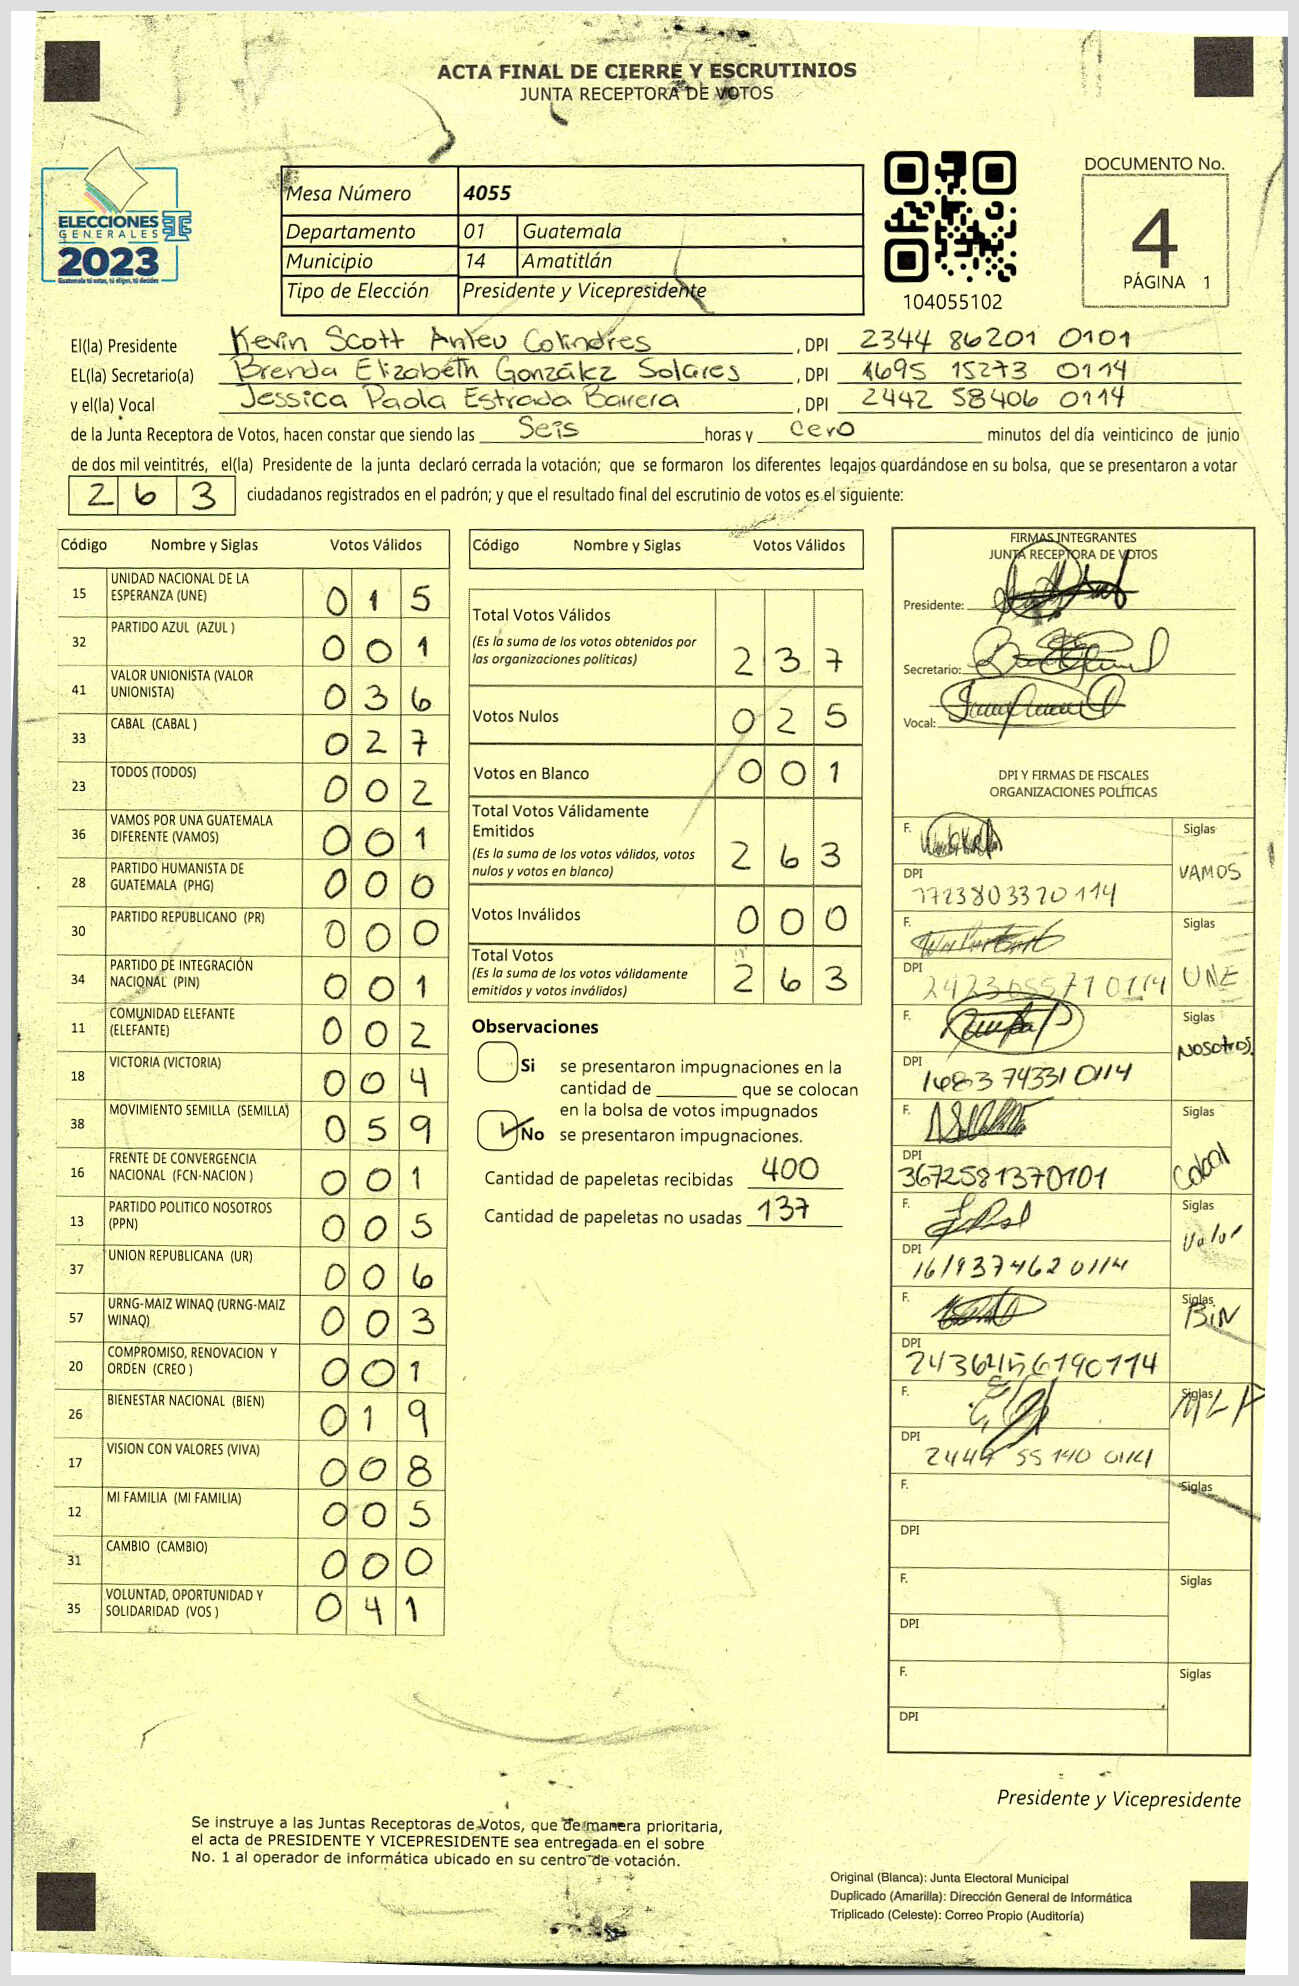 ACTA FINAL DE CIERRE Y ESCRUTINIOS
JUNTA RECEPTORA DE VOTOS
ELECCIONES
GENERALES
2023
Guatemala tú votas, tú eliges, tú decides
Mesa Número 4055
Departamento 01 Guatemala
Municipio 14 Amatitlán
Tipo de Elección Presidente y Vicepresidente
104055102
DOCUMENTO No.
4
PÁGINA 1
El(la) Presidente Kevin Scott Anleu Colindres, DPI 2344 86201 0101
EL(la) Secretario(a) Brenda Elizabeth González Solares, DPI 1695 15273 0114
y el(la) Vocal Jessica Paola Estrada Barrera, DPI 2442 58406 0114
de la Junta Receptora de Votos, hacen constar que siendo las Seis horas y cero minutos del día veinticinco de junio
de dos mil veintitrés, el(la) Presidente de la junta declaró cerrada la votación; que se formaron los diferentes legajos guardándose en su bolsa, que se presentaron a votar
263 ciudadanos registrados en el padrón; y que el resultado final del escrutinio de votos es el siguiente:
Código Nombre y Siglas Votos Válidos
15 UNIDAD NACIONAL DE LA
ESPERANZA (UNE) 015
32 PARTIDO AZUL (AZUL ) 001
41 VALOR UNIONISTA (VALOR
UNIONISTA) 036
33 CABAL (CABAL ) 027
23 TODOS (TODOS) 002
36 VAMOS POR UNA GUATEMALA
DIFERENTE (VAMOS) 001
28 PARTIDO HUMANISTA DE
GUATEMALA (PHG) 000
30 PARTIDO REPUBLICANO (PR) 000
34 PARTIDO DE INTEGRACIÓN
NACIONAL (PIN) 001
11 COMUNIDAD ELEFANTE
(ELEFANTE) 002
18 VICTORIA (VICTORIA) 004
38 MOVIMIENTO SEMILLA (SEMILLA) 059
16 FRENTE DE CONVERGENCIA
NACIONAL (FCN-NACION ) 001
13 PARTIDO POLITICO NOSOTROS
(PPN) 005
37 UNION REPUBLICANA (UR) 006
57 URNG-MAIZ WINAQ (URNG-MAIZ
WINAQ) 003
20 COMPROMISO, RENOVACION Y
ORDEN (CREO ) 001
26 BIENESTAR NACIONAL (BIEN) 019
17 VISION CON VALORES (VIVA) 008
12 MI FAMILIA (MI FAMILIA) 005
31 CAMBIO (CAMBIO) 000
35 VOLUNTAD, OPORTUNIDAD Y
SOLIDARIDAD (VOS ) 041
Código Nombre y Siglas Votos Válidos
Total Votos Válidos
(Es la suma de los votos obtenidos por
las organizaciones políticas) 237
Votos Nulos 025
Votos en Blanco 001
Total Votos Válidamente
Emitidos
(Es la suma de los votos válidos, votos
nulos y votos en blanco) 263
Votos Inválidos 000
Total Votos
(Es la suma de los votos válidamente
emitidos y votos inválidos) 263
Observaciones
Si se presentaron impugnaciones en la
cantidad de ________ que se colocan
en la bolsa de votos impugnados
No se presentaron impugnaciones.
Cantidad de papeletas recibidas 400
Cantidad de papeletas no usadas 137
FIRMAS INTEGRANTES
JUNTA RECEPTORA DE VOTOS
Presidente:
Secretario:
Vocal:
DPI Y FIRMAS DE FISCALES
ORGANIZACIONES POLÍTICAS
F. Siglas
VAMOS
DPI
1723803320114
F. Siglas
UNE
DPI
F. Siglas
NOSOTROS
DPI
1683743310114
F. Siglas
Cabal
DPI
3672581370101
F. Siglas
Valor
DPI
1619374620114
F. Siglas
BiN
DPI
2436456190114
F. Siglas
MLP
DPI
2444 55140 0114
F. Siglas
DPI
F. Siglas
DPI
F. Siglas
DPI
Presidente y Vicepresidente
Se instruye a las Juntas Receptoras de Votos, que de manera prioritaria,
el acta de PRESIDENTE Y VICEPRESIDENTE sea entregada en el sobre
No. 1 al operador de informática ubicado en su centro de votación.
Original (Blanca): Junta Electoral Municipal
Duplicado (Amarilla): Dirección General de Informática
Triplicado (Celeste): Correo Propio (Auditoría)